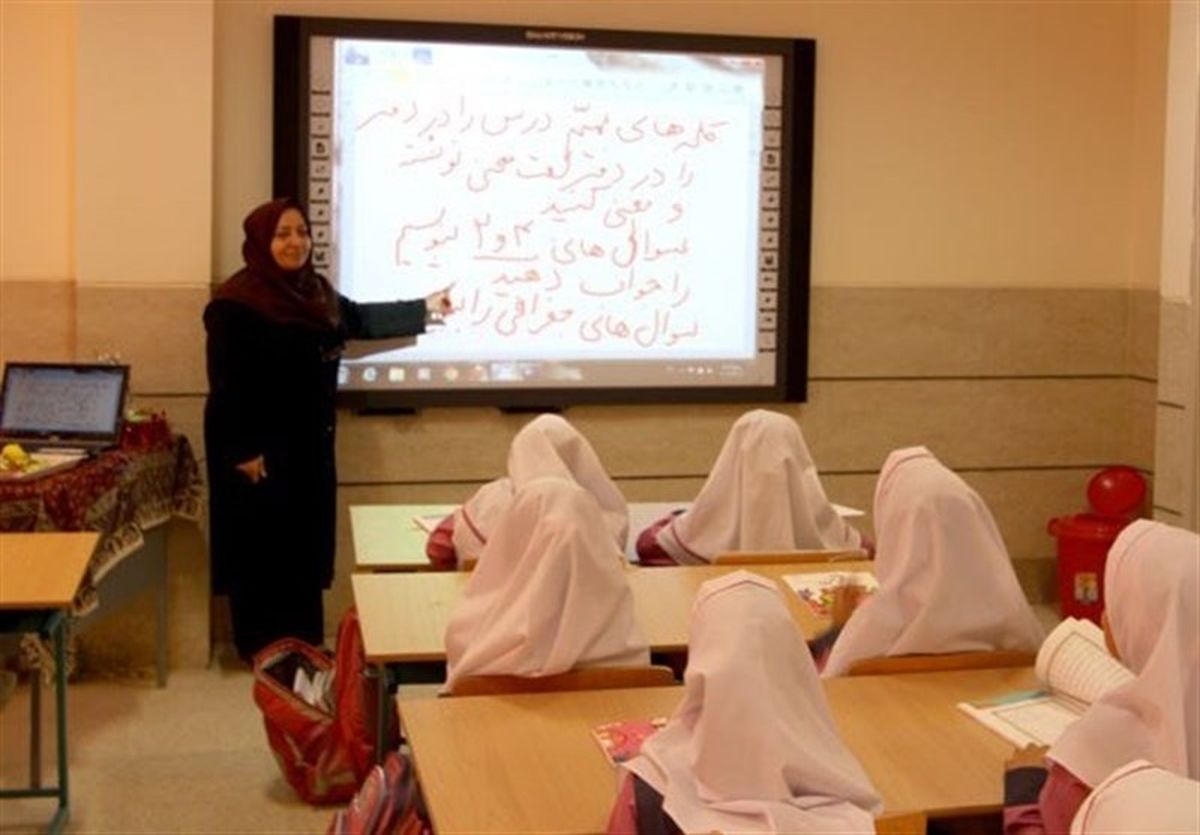 SMART VISION
کلمه های مهمّ درس را در دفتر
را در دفتر لغت معنی نوشته
و معنی کنید
سوال های ۴ و ۲ بنویسیم
را جواب دهید
سوال های جغرافی را